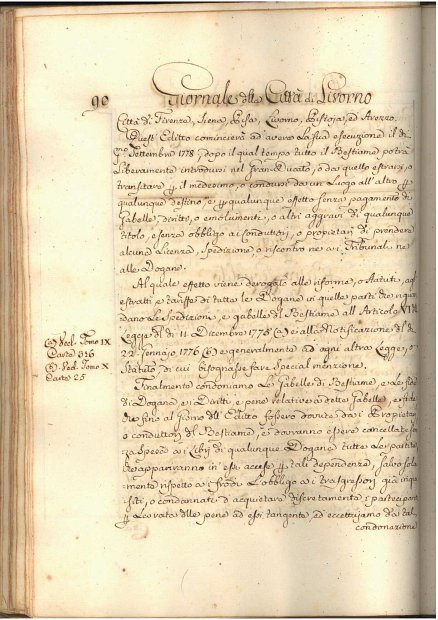 90 Giornale della Città di Livorno
Città di Firenze, Siena, Pisa, Livorno, Pistoja, ed Arezzo.
Quest' Editto comincierà ad avere la sua esecuzione il dì
p.mo Settembre 1778; dopo il qual tempo tutto il Bestiame potrà
liberamente introdursi nel Gran-Ducato, o da quello estrarsi, o
transitare p il medesimo, o condursi da un Luogo all'altro p
qualunque destino, e p qualunque effetto senza pagamento di
Gabelle, diritti, o emolumenti, o altri aggravi di qualunque
titolo, e senza obbligo ai Conduttori, o propietari di prendere
alcuna Licenza, spedizione, o riscontro ne ai Tribunali, ne
alle Dogane.
Al quale effetto viene derogato alle riforme, o Statuti, agl'
estratti, e tariffe di tutte le Dogane in quelle parti che riguar
dano le spedizioni, e gabelle del Bestiame all'Articolo VI della
Legge del dì 11 Dicembre 1775 (a) e alla Notificazione del dì
22 Gennajo 1776 (b) e generalmente ad ogni altra Legge, o
Statuto di cui bisognasse fare special menzione.
(a) Vedl. Tomo IX
Carte 316
(b) Vedl. Tomo X
Carte 25
Finalmente condoniamo le Gabelle di Bestiame, e le fide
di Dogana, e i Diritti, e pene relative a dette Gabelle, e fide
che fino al giorno dell' Editto fossero dovute da i Propietari,
o conduttori del Bestiame, e dovranno essere cancellate
a i Libri di qualunque Dogana tutte le partite
che appariranno in essi accese p tali dependenze, salvo sola
mente rispetto a i frodi l'obbligo a i trasgressori già inqui
siti, o condannati d'acquietare discretamente i partecipanti
p la rata delle pene ad essi tangente, ed eccettuamo da tal
condonazione